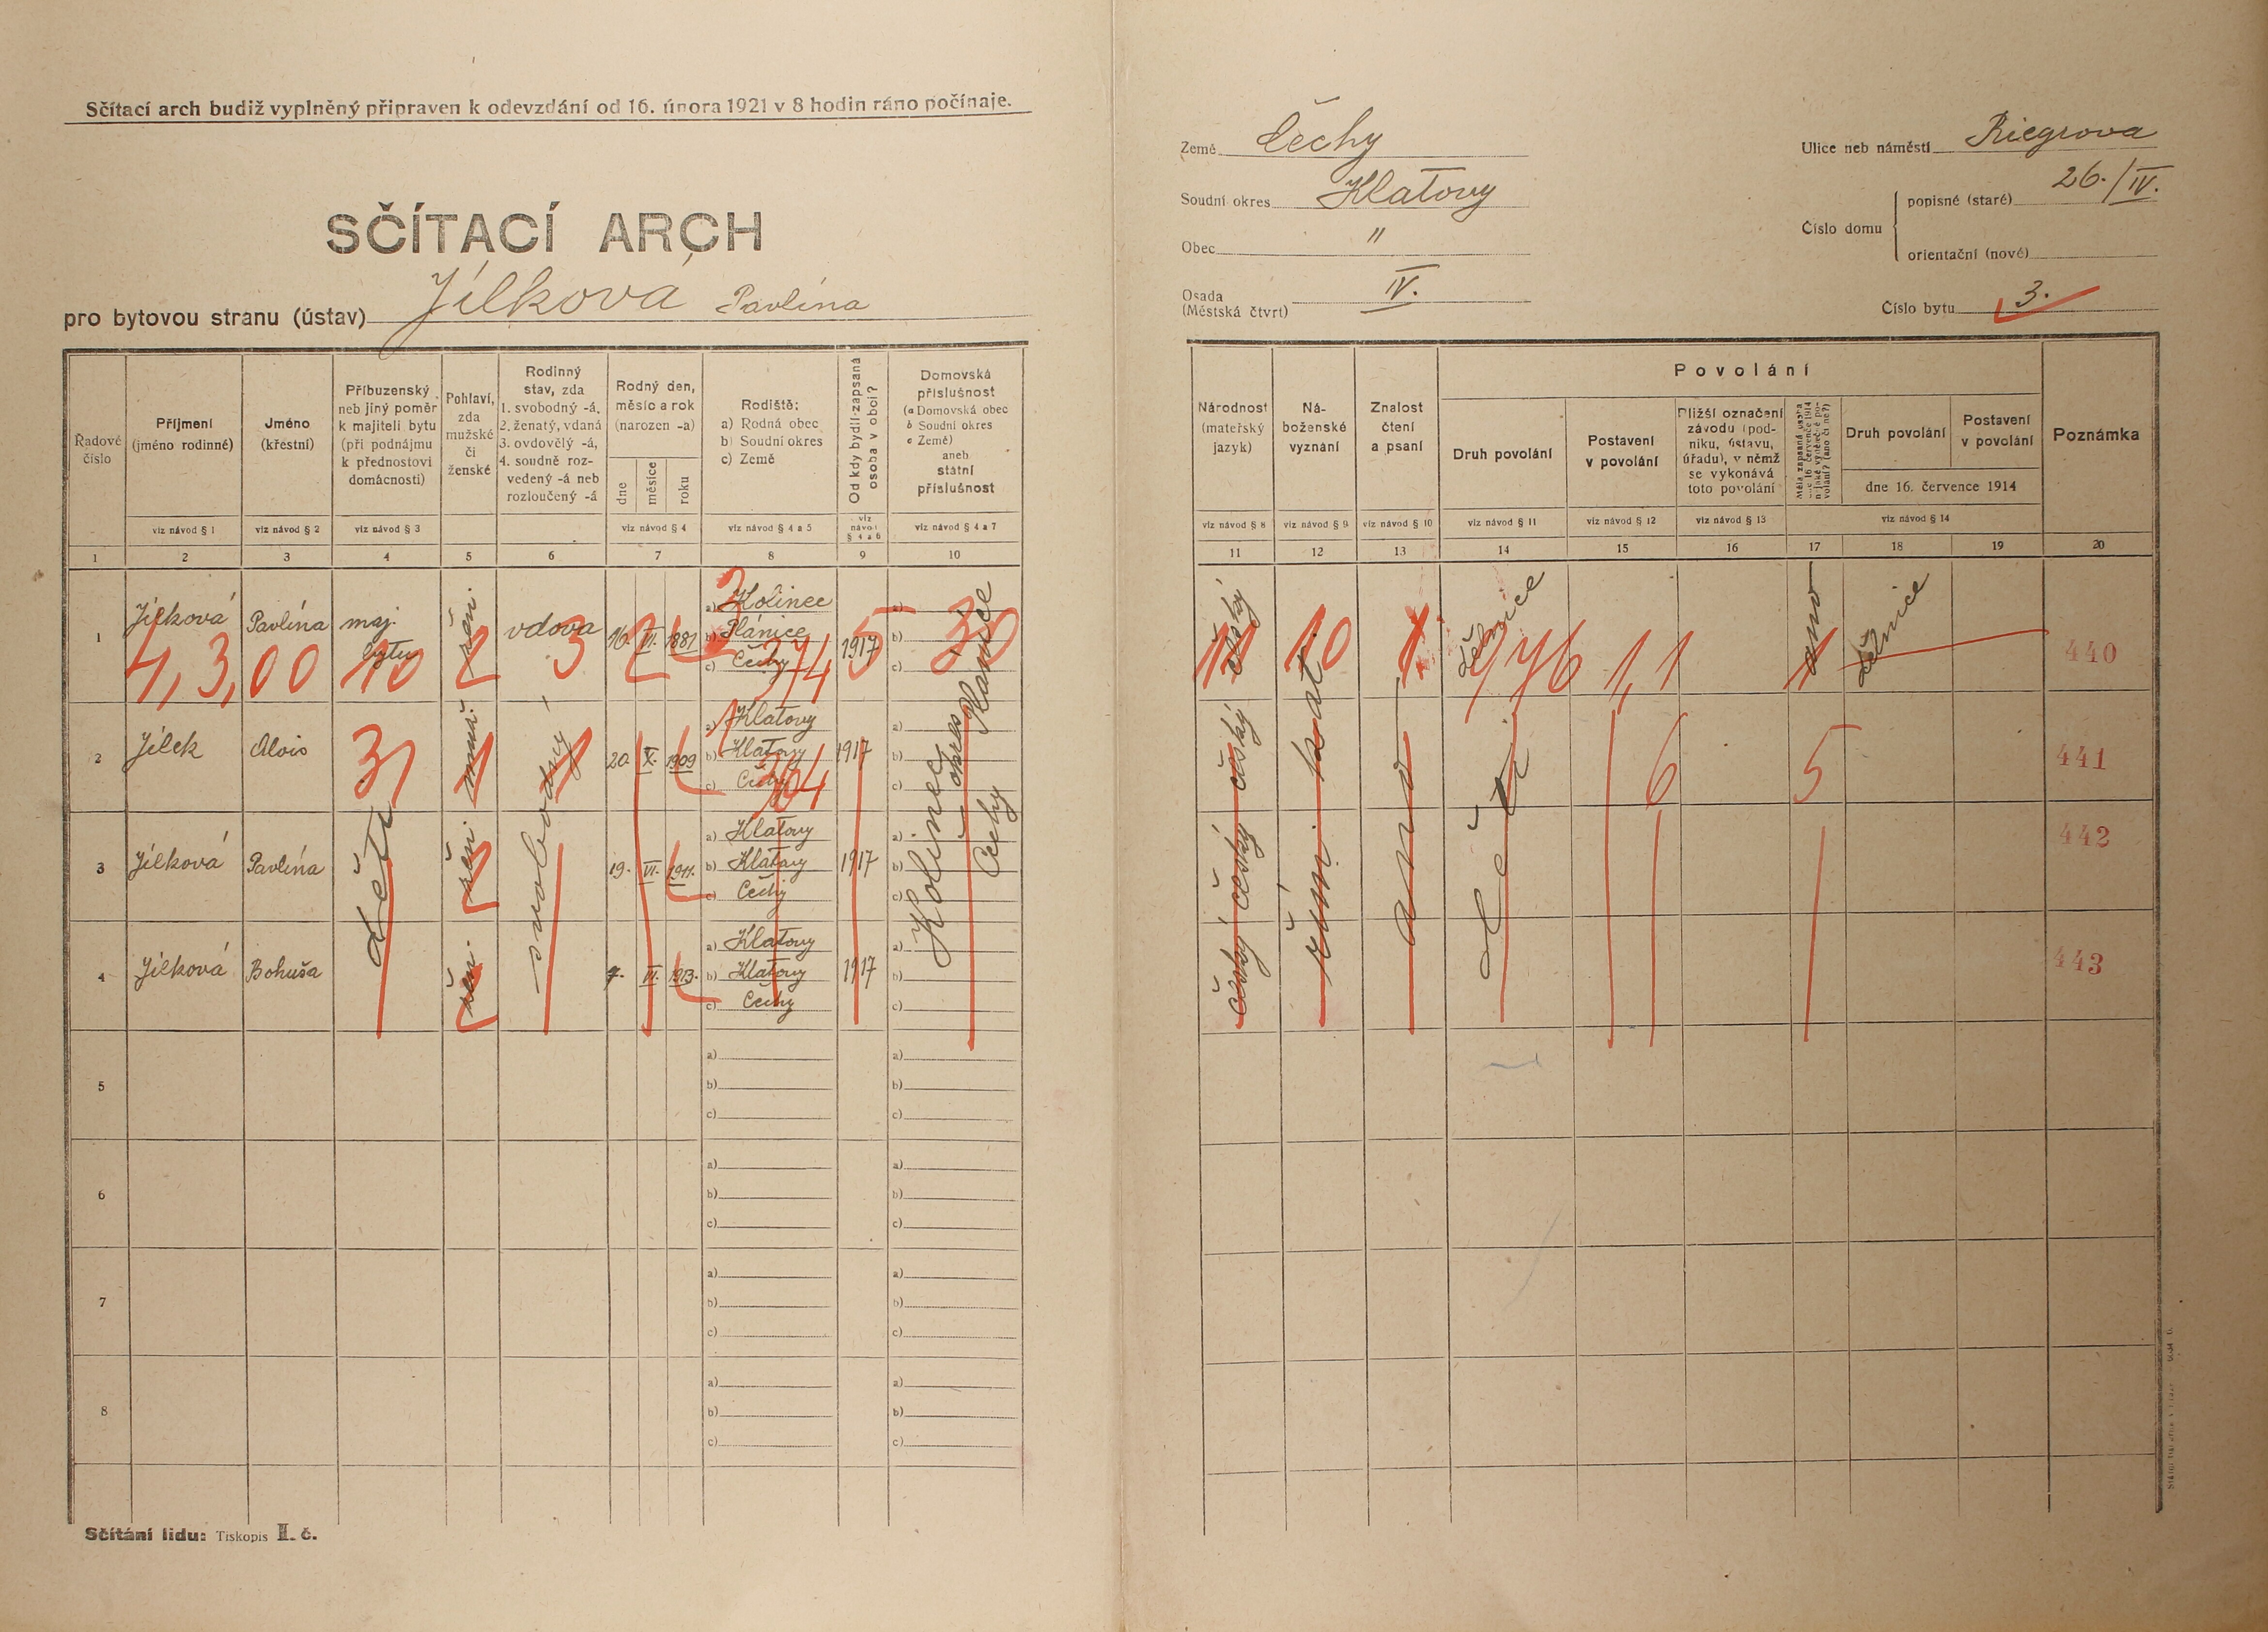 Sčítací arch budiž vyplněný připraven k odevzdání od 16. února 1921 v 8 hodin ráno počínaje.
SČÍTACÍ ARCH
pro bytovou stranu (ústav) Jílková Pavlína
Země Čechy
Soudní okres Klatovy
Obec "
Osada IV.
(Městská čtvrť)
Ulice neb náměstí Riegrova
Číslo domu
popisné (staré) 26./IV.
orientační (nové)
Číslo bytu 3.
Řadové číslo
Příjmení (jméno rodinné)
Jméno (křestní)
Příbuzenský neb jiný poměr k majiteli bytu (při podnájmu k přednostovi domácnosti)
Pohlaví, zda mužské či ženské
Rodinný stav, zda 1. svobodný -á, 2. ženatý, vdaná 3. ovdovělý -á, 4. soudně rozvedený -á neb rozloučený -á
Rodný den, měsíc a rok (narozen -a)
dne měsíce roku
Rodiště: a) Rodná obec b) Soudní okres c) Země
Od kdy bydlí zapsaná osoba v obci?
Domovská příslušnost (a Domovská obec b Soudní okres c Země) aneb státní příslušnost
Národnost (mateřský jazyk)
Náboženské vyznání
Znalost čtení a psaní
Povolání
Druh povolání
Postavení v povolání
Bližší označení závodu (podniku, ústavu, úřadu), v němž se vykonává toto povolání
Druh povolání
Postavení v povolání
dne 16. července 1914
Poznámka
viz návod § 1 viz návod § 2 viz návod § 3 viz návod § 4 viz návod § 4 a 5 viz návod § 4 a 6 viz návod § 4 a 7
viz návod § 8 viz návod § 9 viz návod § 10 viz návod § 11 viz návod § 12 viz návod § 13 viz návod § 14
1 2 3 4 5 6 7 8 9 10
11 12 13 14 15 16 17 18 19 20
1 Jílková Pavlína maj. bytu žen. vdova 16. VI. 1881 a) Kolinec b) Plánice c) Čechy 1917 český dělnice ano dělnice 440
4,3,00 10 2 3 2 3 314 5 30 10 1 776 1,1 1
2 Jílek Alois muž. 20. X. 1909 a) Klatovy b) Klatovy c) Čechy 1917 český 441
31 1 1 1 304 6 5
3 Jílková Pavlína žen. 19. VI. 1911. a) Klatovy b) Klatovy c) Čechy 1917 český 442
4 Jílková Bohuša žen. 7. VI. 1913. a) Klatovy b) Klatovy c) Čechy 1917 český 443
děti
svobodný
Kolinec
okres Plánice
Čechy
řím. kat.
ano
děti
5 a) b) c) a) b) c)
6 a) b) c) a) b) c)
7 a) b) c) a) b) c)
8 a) b) c) a) b) c)
Sčítání lidu: Tiskopis II. č.